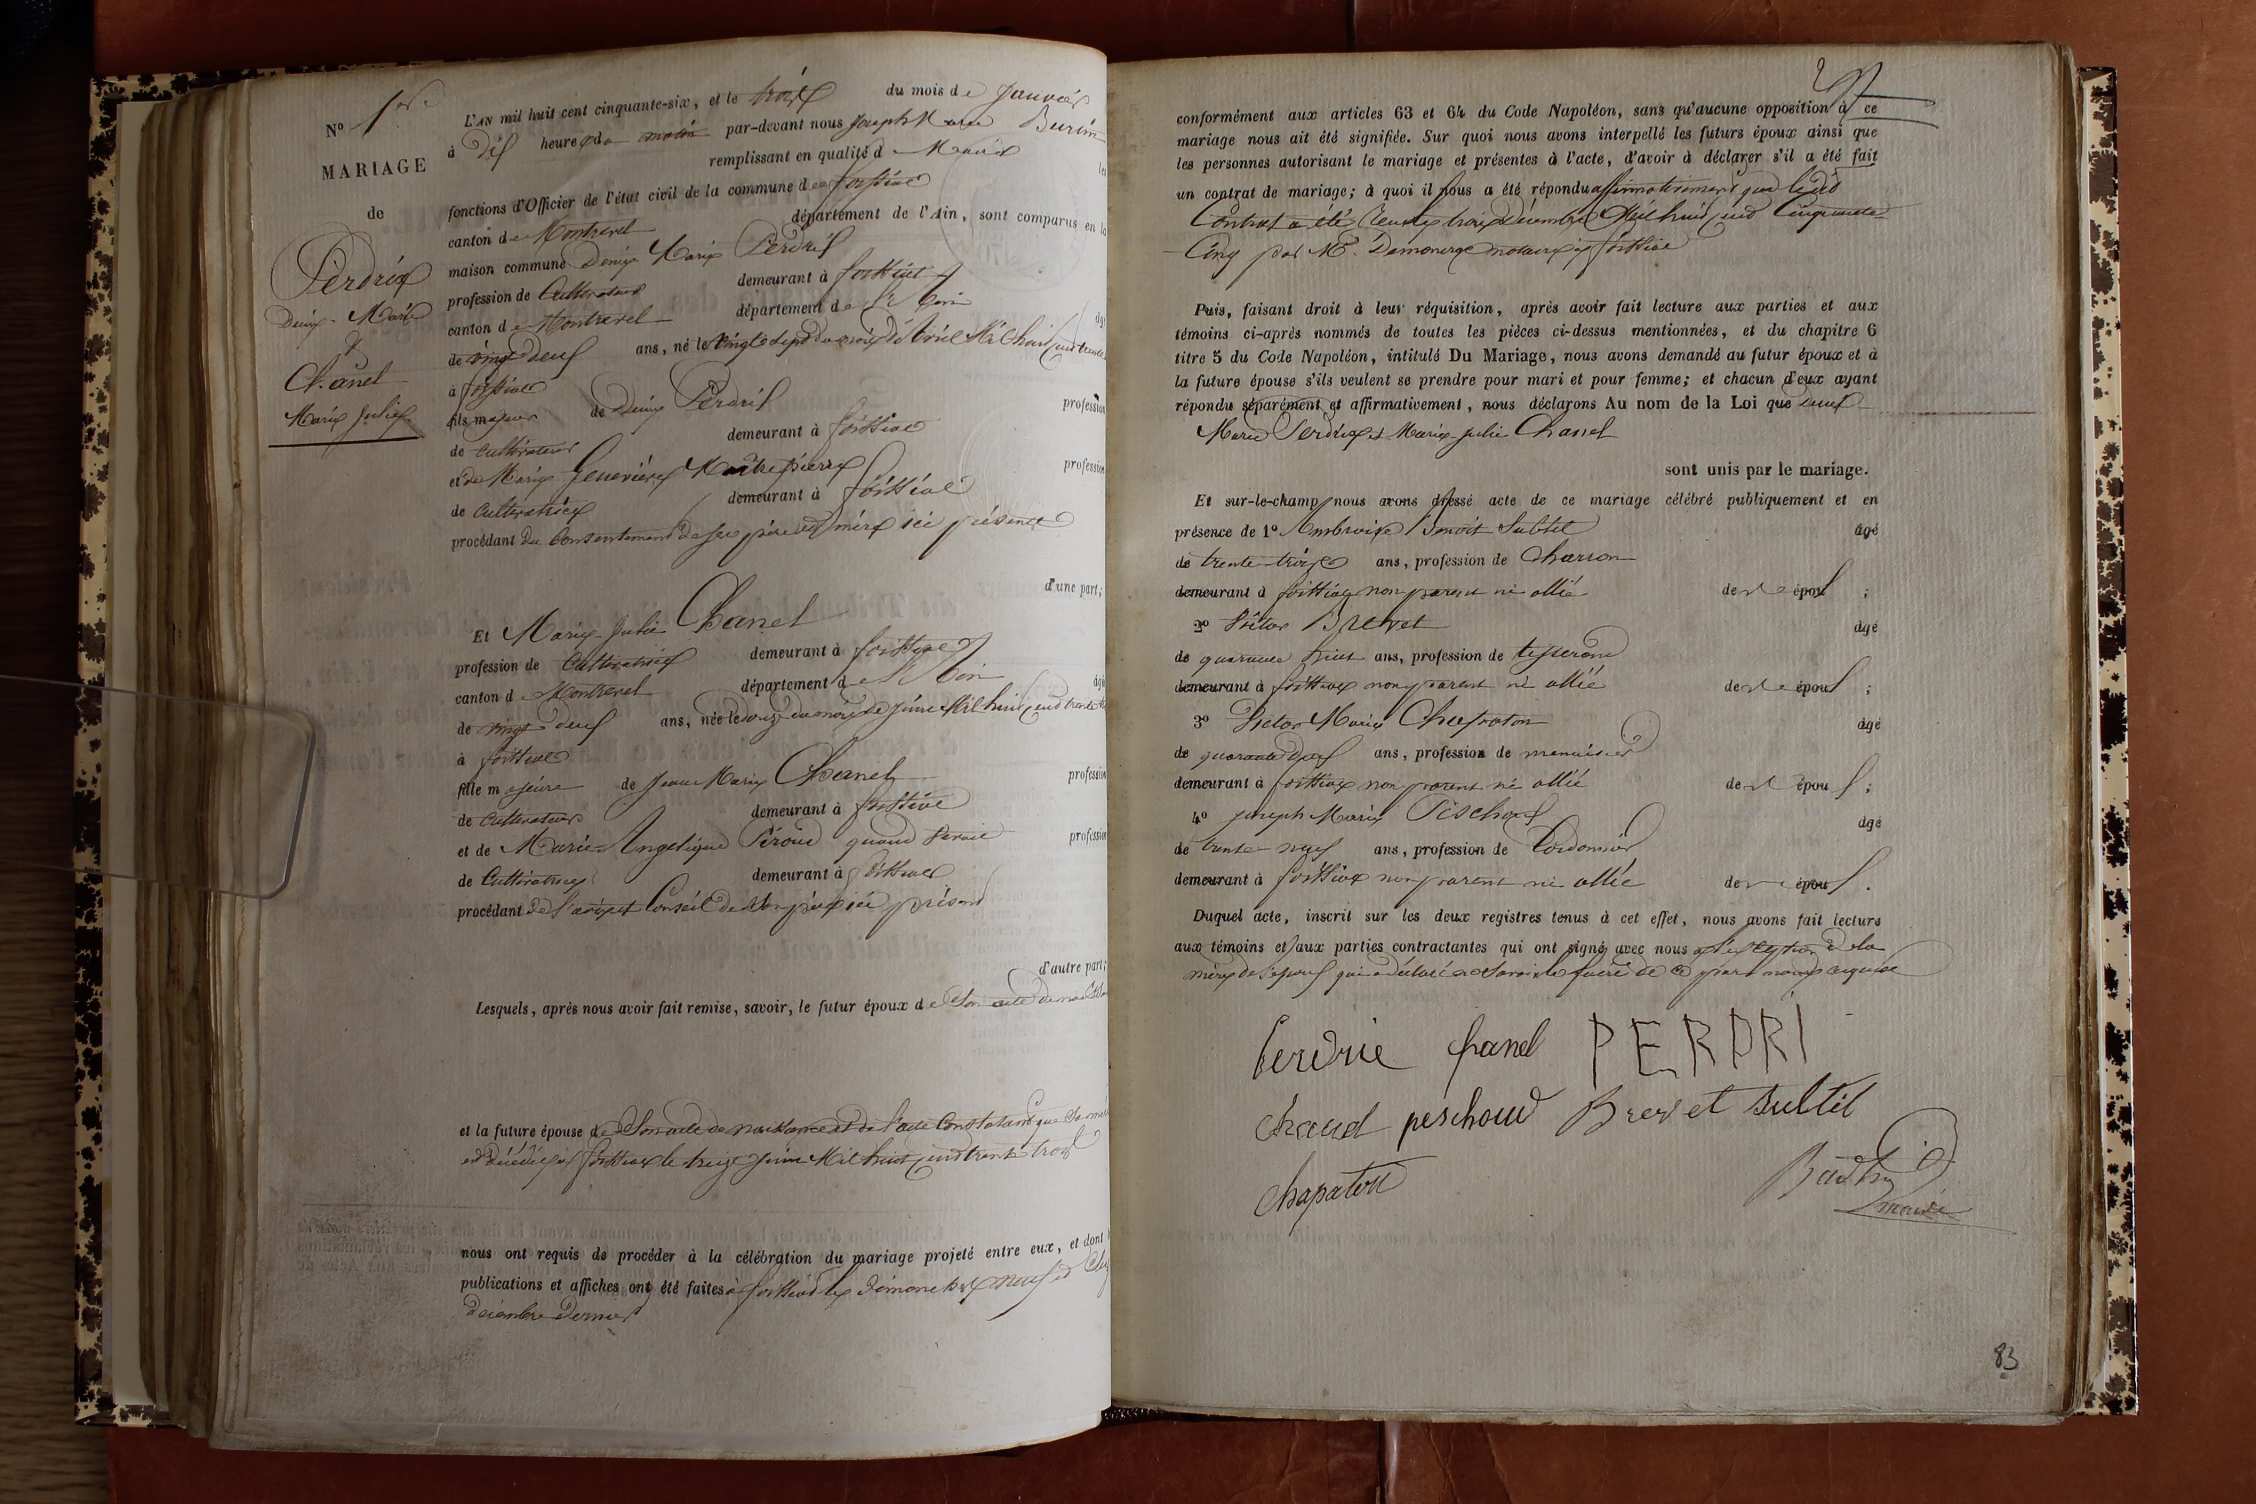 Nº 1er
MARIAGE
de
Perdrix
Denis-Marie
et
Chanel
Marie Julie
L'AN mil huit cent cinquante-six, et le trois du mois de Janvier
à dix heures du matin par-devant nous Joseph Marie
remplissant en qualité de Maire les
fonctions d'Officier de l'état civil de la commune de foissiat
canton de Montrevel département de l'Ain, sont comparus en la
maison commune Denis Marie Perdrix
profession de Cultivateur demeurant à foissiat
canton de Montrevel département de l'Ain âgé
de vingt deux ans, né le vingt sept du mois d'Avril Mil huit cent trente
à foissiat
fils majeur de Denis Perdrix profession
de Cultivateur demeurant à foissiat
et de Marie Geneviève Maitrepierre profession
de Cultivatrice demeurant à foissiat
procédant du Consentement de ses père et mère ici présents
d'une part;
Et Marie Julie Chanel
profession de Cultivatrice demeurant à foissiat
canton de Montrevel département de l'Ain âgé
de vingt deux ans, née le douze du mois de Juin Mil huit cent trente
à foissiat
fille majeure de Jean Marie Chanel profession
de Cultivateur demeurant à foissiat
et de Marie-Angélique Péroud quand vivait profession
de Cultivatrice demeurant à foissiat
procédant de l'avis et Conseil de son père ici présent
d'autre part;
Lesquels, après nous avoir fait remise, savoir, le futur époux de Son acte de
et la future épouse de Son acte de naissance et de l'acte Constatant que Sa mère
est décédée à foissiat le treize Juin Mil huit cent trente trois
nous ont requis de procéder à la célébration du mariage projeté entre eux, et dont
publications et affiches ont été faites à foissiat les dimanches neuf et
décembre dernier
conformément aux articles 63 et 64 du Code Napoléon, sans qu'aucune opposition à ce
mariage nous ait été signifiée. Sur quoi nous avons interpellé les futurs époux ainsi que
les personnes autorisant le mariage et présentes à l'acte, d'avoir à déclarer s'il a été fait
un contrat de mariage; à quoi il nous a été répondu affirmativement que le dit
Contrat a été le trois Décembre Mil huit cent Cinquante
Cinq par Me. Démonerge notaire à foissiat
Puis, faisant droit à leur réquisition, après avoir fait lecture aux parties et aux
témoins ci-après nommés de toutes les pièces ci-dessus mentionnées, et du chapitre 6
titre 5 du Code Napoléon, intitulé Du Mariage, nous avons demandé au futur époux et à
la future épouse s'ils veulent se prendre pour mari et pour femme; et chacun d'eux ayant
répondu séparément et affirmativement, nous déclarons Au nom de la Loi que Denis
Marie Perdrix et Marie-Julie Chanel
sont unis par le mariage.
Et sur-le-champ nous avons dressé acte de ce mariage célébré publiquement et en
présence de 1º Ambroise Benoit Subtil âgé
de trente-trois ans, profession de Charron
demeurant à foissiat non parent ni allié de époux ;
2º Victor Brevet âgé
de quarante huit ans, profession de tisserand
demeurant à foissiat non parent ni allié de époux ;
3º Victor Marie Chapaton âgé
de quarante deux ans, profession de menuisier
demeurant à foissiat non parent ni allié de époux ;
4º Joseph Marie Péschoux âgé
de trente-neuf ans, profession de Cordonnier
demeurant à foissiat non parent ni allié de époux .
Duquel acte, inscrit sur les deux registres tenus à cet effet, nous avons fait lecture
aux témoins et aux parties contractantes qui ont signé avec nous à l'exception de la
mère de l'époux qui a déclaré ne savoir le faire de ce par nous requise
Perdrie Chanel PERDRI
Chanel peschoud Brevet Subtil
Chapaton
maire
83